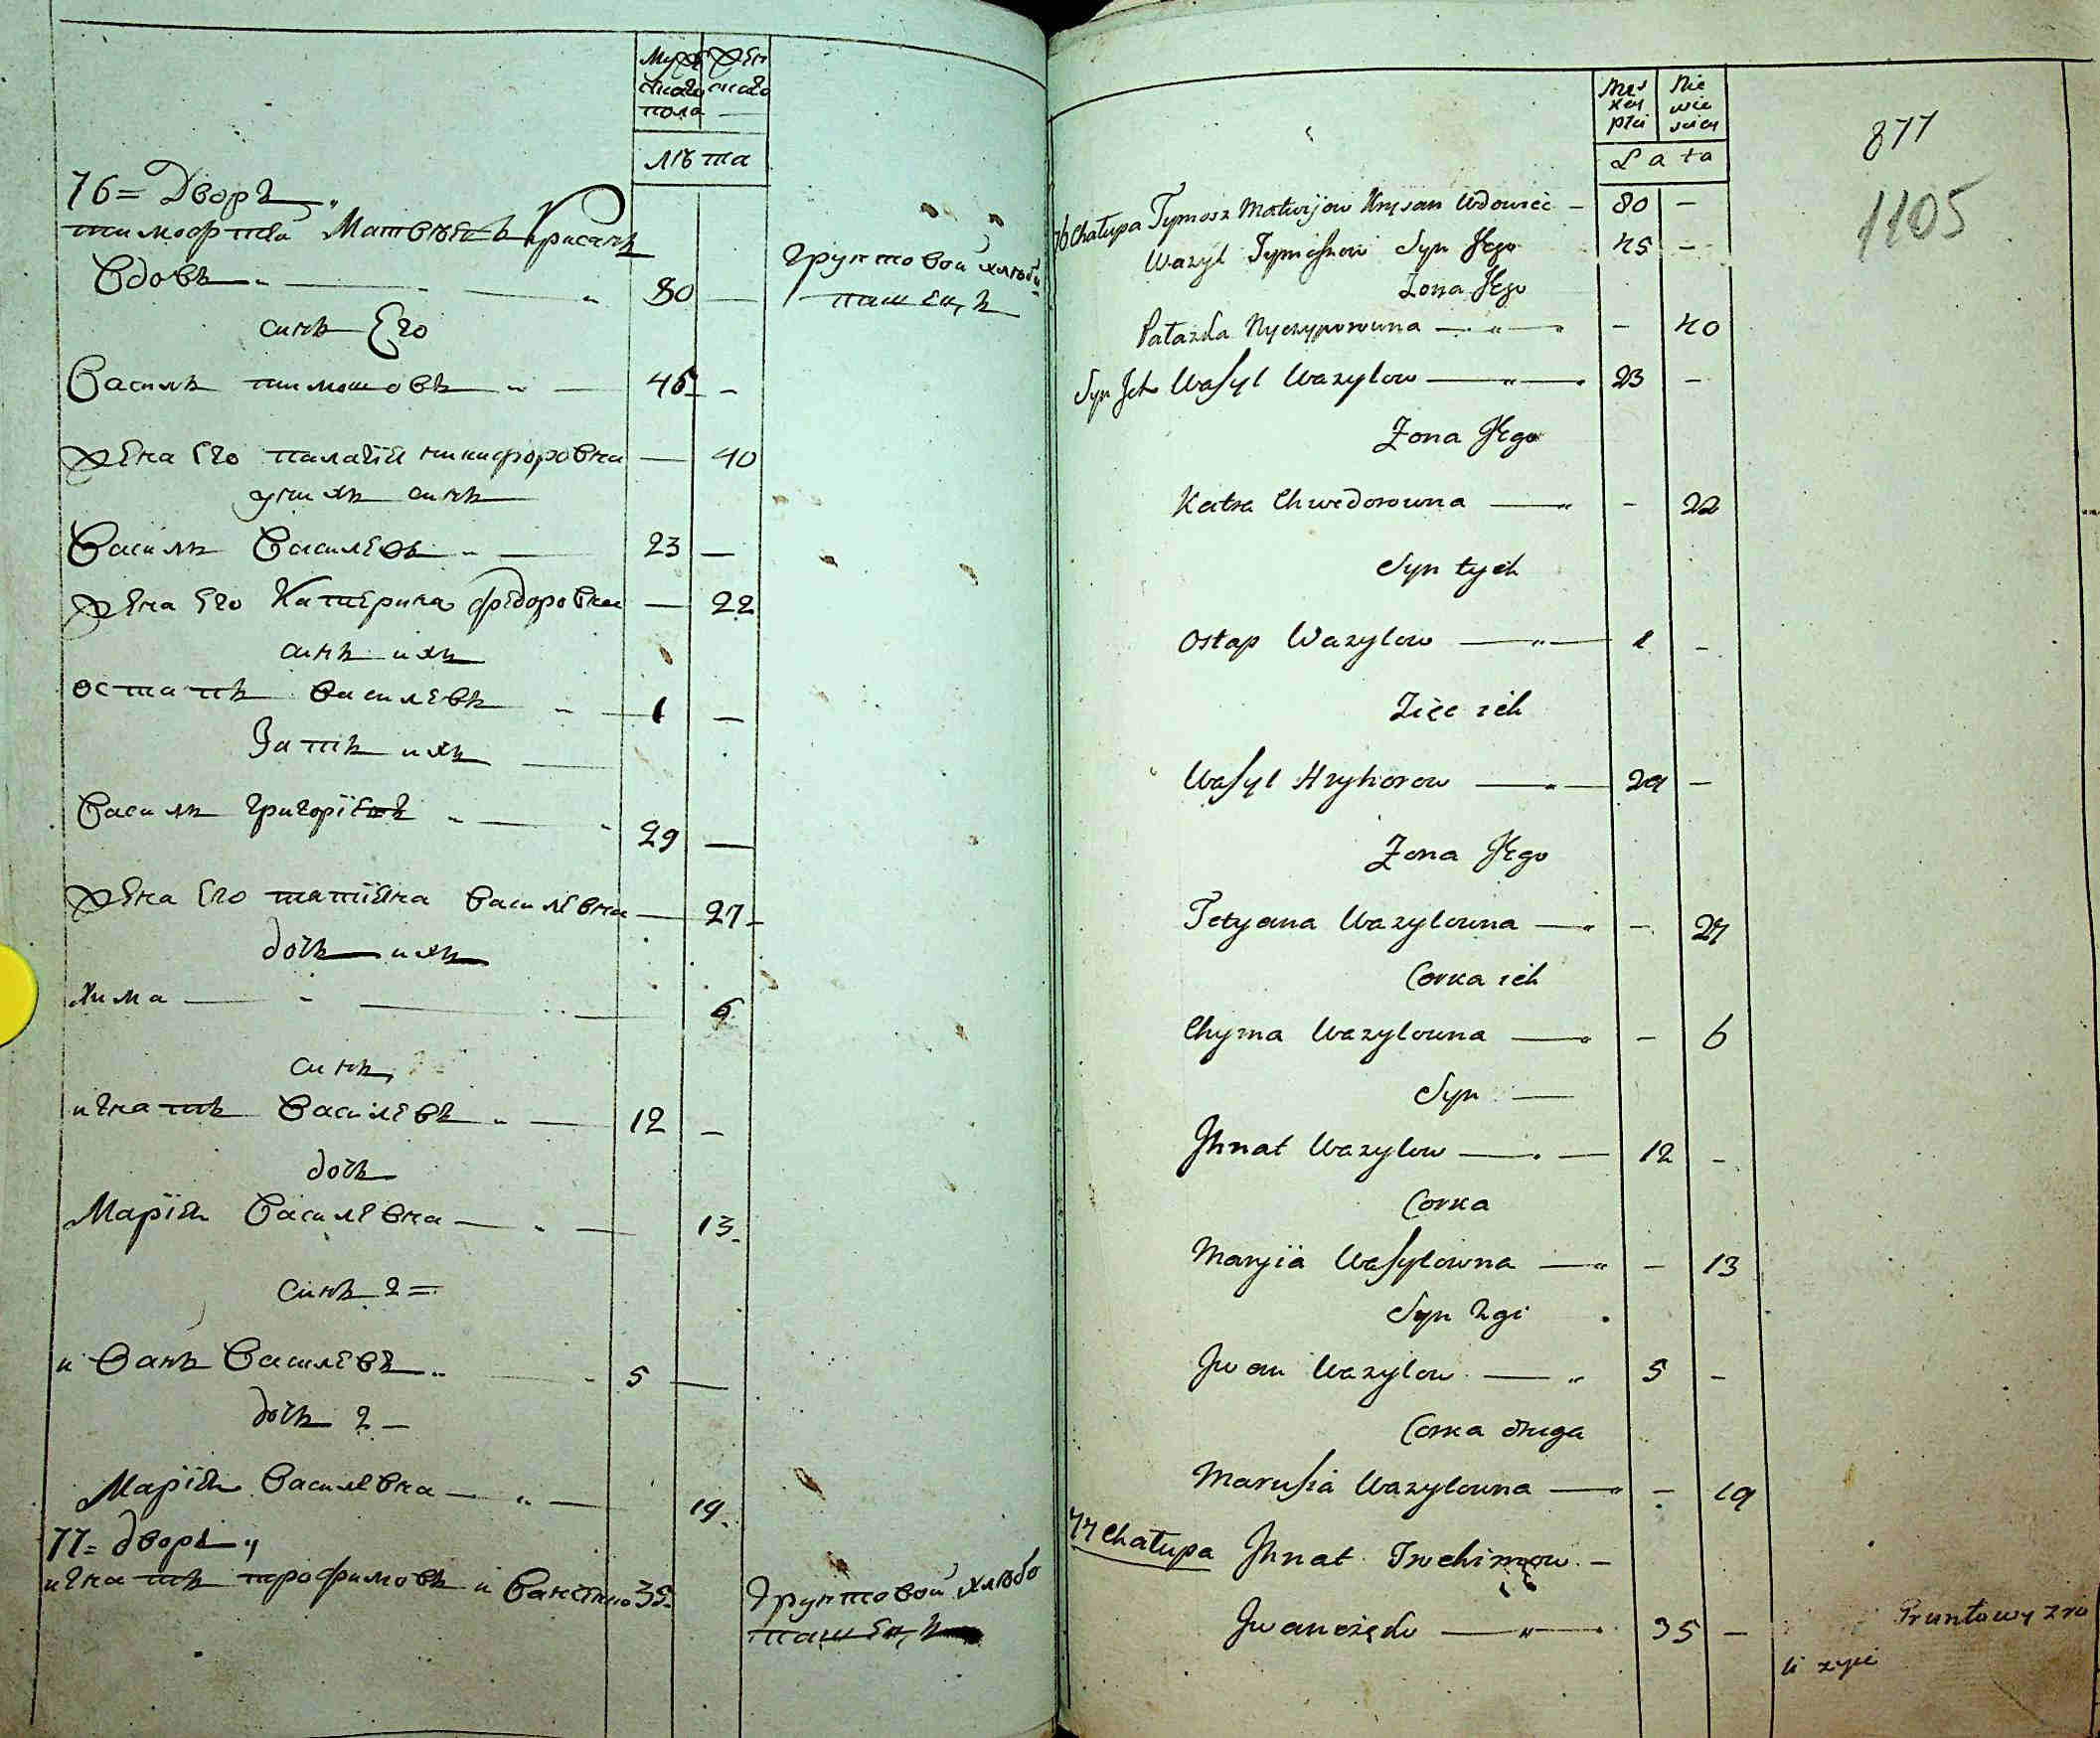 Мужскаго пола
Женскаго
лѣта
76 = Дворъ
тимофтей Матвѣевъ Крисанъ
вдовъ 80 —
грунтовой хлѣбо
пашецъ
синъ Его
Василь тимошовъ 45 —
жена Его палагія никифоровна — 40
у них синъ
Василь Василевъ 23 —
жена Его Катерина федоровна — 22
синъ ихъ
остапъ василевъ 1 —
Зать ихъ
Василь григоріевъ 29 —
жена Его татіяна василевна — 27
дочь ихъ
хима 6
синъ
игнатъ Василевъ 12 —
дочь
Марія Василевна 13
синъ 2 =
иванъ Василевъ 5 —
дочь 2 —
Марія Василевна 19
77 = дворъ
игнатъ трофимовъ 35
грунтовой хлѣбо
пашецъ
Męs
key
płci
Nie
wie
sciey
Lata
877
1105
76 Chałupa Tymosz Matwijow Krysan Wdowiec — 80 —
Wazyl Tymoszow Syn Jego 45 —
Zona Jego
Pałazka Nyczyporowna — — 40
Syn Ich Wasyl Wazylow — 23 —
Zona Jego
Katra Chwedorowna — — 22
Syn tych
Ostap Wazylow — 1 —
Zięc ich
Wasyl Hryhorow — 29 —
Zona Jego
Tetyana Wazylowna — — 27
Corka ich
Chyma Wazylowna — — 6
Syn —
Jhnat Wazylow — 12 —
Corka
Maryia Wasylowna — — 13
Syn 2gi
Jwan Wazylow — 5 —
Corka druga
Marusia Wazylowna — — 19
77 Chałupa Jhnat Trochimow —
35 —
Gruntowy